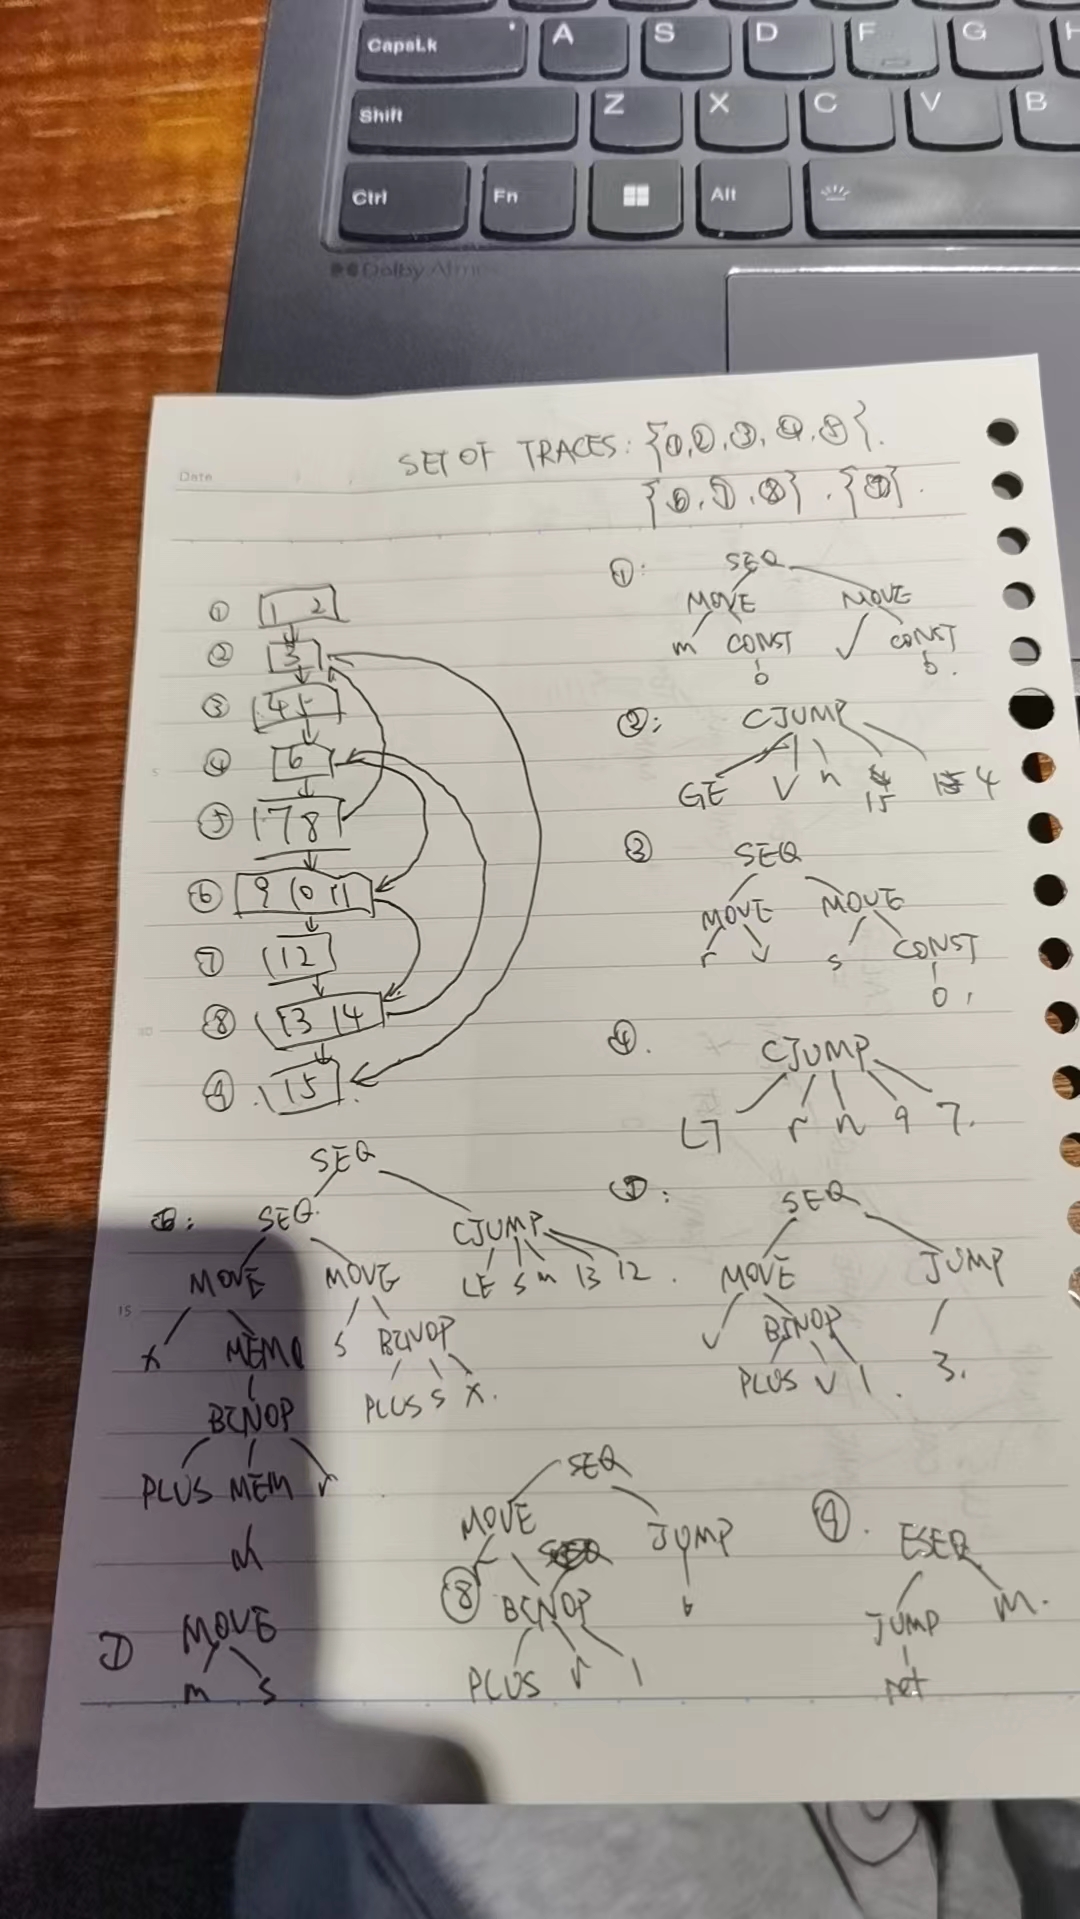 CapsLk A S D F G H
Shift Z X C V B
Ctrl Fn Alt
Dolby Atmos
Date
SET OF TRACES: {①,②,③,④,⑤}.
{⑥,⑦,⑧}. {⑨}.
① 1 2
② 3
③ 4 5
④ 6
⑤ 7 8
⑥ 9 10 11
⑦ 12
⑧ 13 14
⑨ 15
①: SEQ
MOVE MOVE
m CONST v CONST
0 0.
②: CJUMP
GE v n 15 4
③ SEQ
MOVE MOVE
r v s CONST
0
④. CJUMP
LT r n 9 7.
⑤: SEQ
MOVE JUMP
v BINOP 3.
PLUS v 1.
⑥: SEQ
SEQ CJUMP
MOVE MOVE LE s m 13 12.
x MEM s BINOP
BINOP PLUS s x.
PLUS MEM r
⑦ MOVE
m s
⑧ SEQ
MOVE JUMP
r BINOP 6
PLUS r 1
⑨. ESEQ
JUMP m.
ret
5
10
15